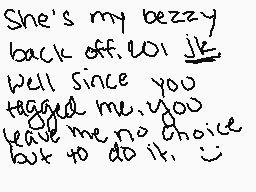 She's my bezzy
back off. lol jk.
Well since you
tagged me. you
leave me no choice
but to do it. :)